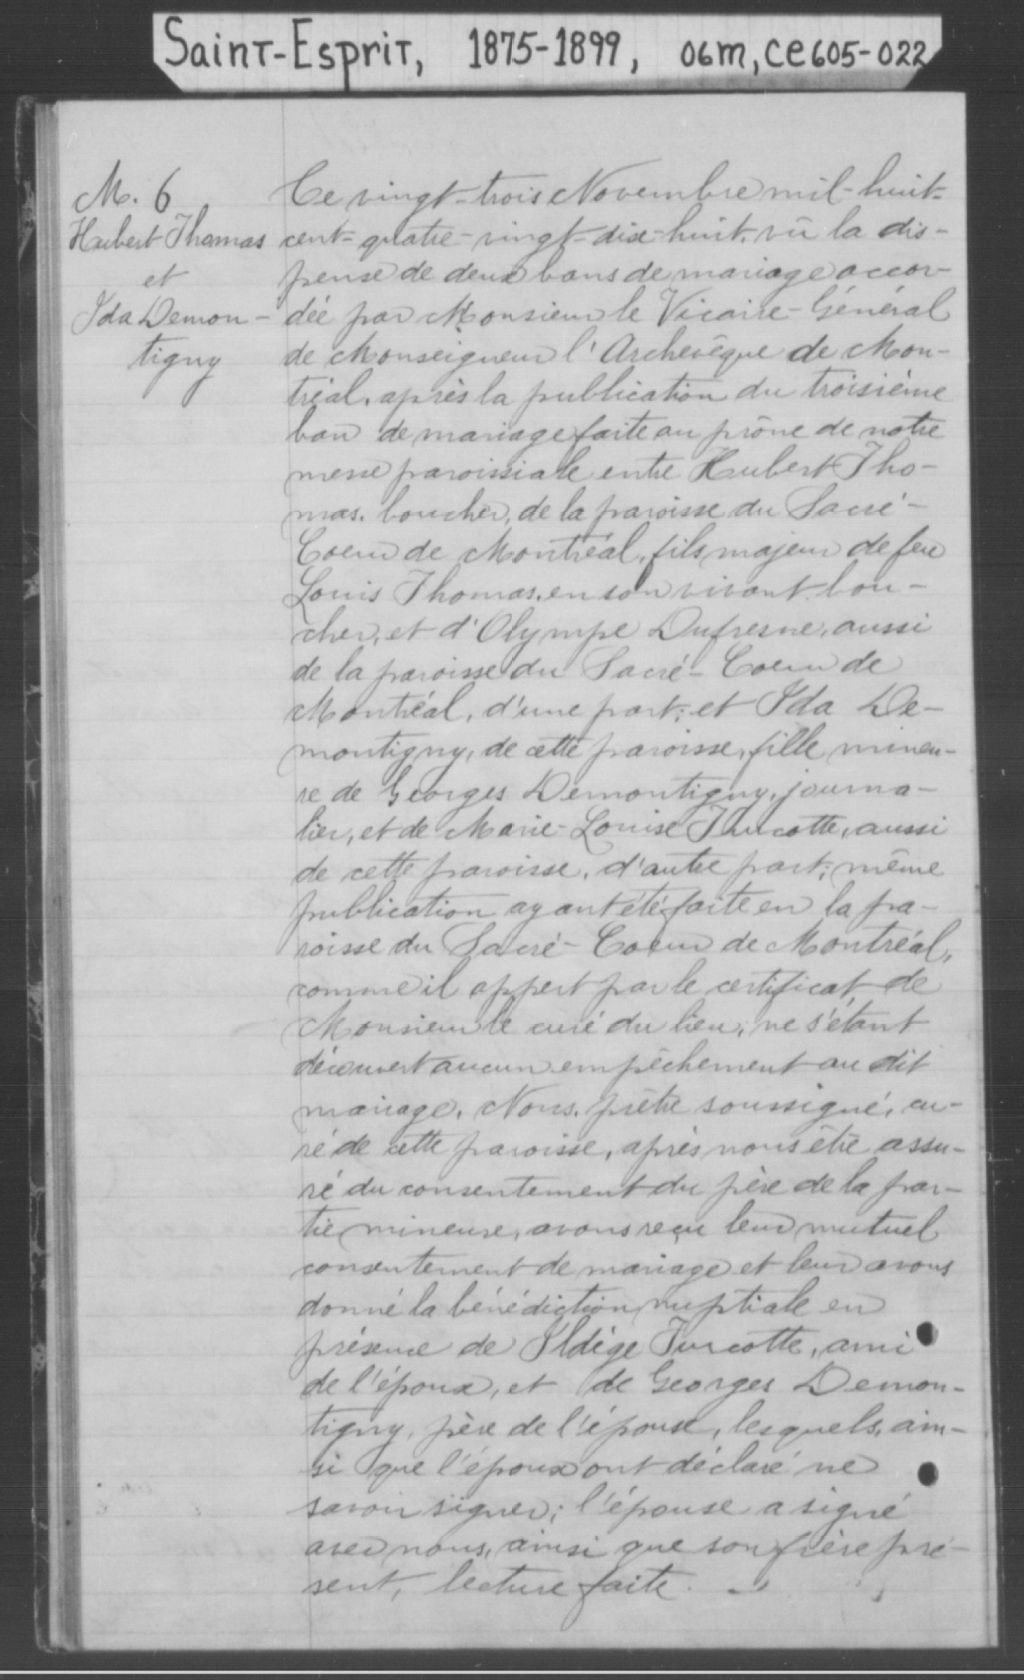 Saint-Esprit, 1875-1899, 06m, ce605-022
M. 6
Hubert Thomas
et
Ida Demon-
tigny
Ce vingt-trois Novembre mil-huit-
cent-quatre-vingt-dix-huit, vû la dis-
pense de deux bans de mariage accor-
dée par Monsieur le Vicaire-Général
de Monseigneur l'Archevêque de Mon-
tréal, après la publication du troisième
ban de mariage faite au prône de notre
messe paroissiale entre Hubert Tho-
mas, boucher, de la paroisse du Sacré-
Coeur de Montréal, fils majeur de feu
Louis Thomas, en son vivant bou-
cher, et d'Olympe Dufresne, aussi
de la paroisse du Sacré-Coeur de
Montréal, d'une part; et Ida De-
montigny, de cette paroisse, fille mineu-
re de Georges Demontigny, journa-
lier, et de Marie-Louise Turcotte, aussi
de cette paroisse, d'autre part; même
publication ayant été faite en la pa-
roisse du Sacré-Coeur de Montréal,
comme il appert par le certificat de
Monsieur le curé du lieu; ne s'étant
découvert aucun empêchement au dit
mariage, Nous, prêtre soussigné, cu-
ré de cette paroisse, après nous être assu-
ré du consentement du père de la par-
tie mineure, avons reçu leur mutuel
consentement de mariage et leur avons
donné la bénédiction nuptiale en
présence de Ildège Turcotte, ami
de l'époux, et de Georges Demon-
tigny, père de l'épouse, lesquels, ain-
si que l'époux ont déclaré ne
savoir signer; l'épouse a signé
avec nous, ainsi que son frère pré-
sent, lecture faite.